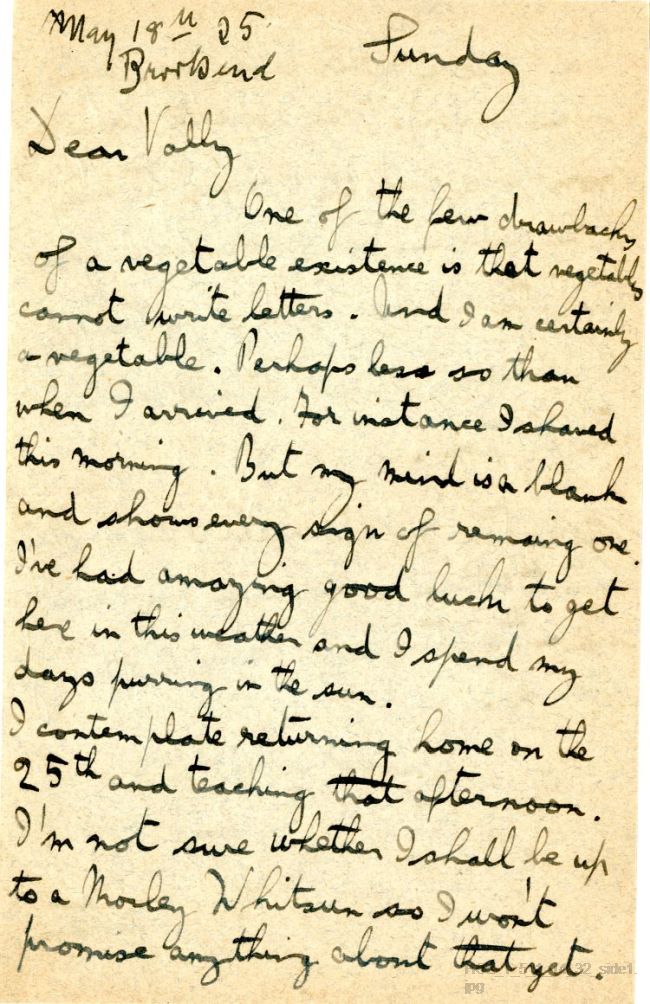 May 18th 25
Brook End
Sunday
Dear Vally
One of the few drawbacks
of a vegetable existence is that vegetables
cannot write letters. And I am certainly
a vegetable. Perhaps less so than
when I arrived. For instance I shaved
this morning. But my mind is a blank
and shows every sign of remaing one.
I've had amazing good luck to get
here in this weather and I spend my
days purring in the sun.
I contemplate returning home on the
25th and teaching that afternoon.
I'm not sure whether I shall be up
to a Morley Whitsun so I won't
promise anything about that yet.
32_side1.
jpg